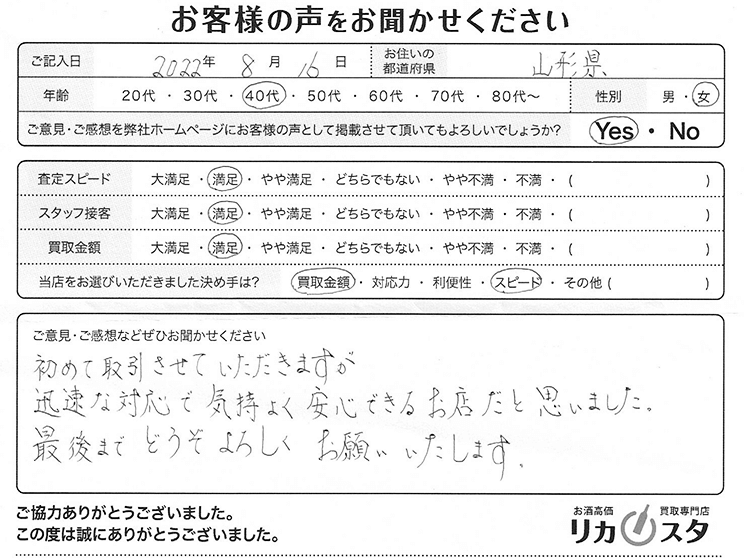 お客様の声をお聞かせください
ご記入日 2022年 8月 16日 お住いの都道府県 山形県
年齢 20代・30代・40代・50代・60代・70代・80代～ 性別 男・女
ご意見・ご感想を弊社ホームページにお客様の声として掲載させて頂いてもよろしいでしょうか? Yes・No
査定スピード 大満足・満足・やや満足・どちらでもない・やや不満・不満・( )
スタッフ接客 大満足・満足・やや満足・どちらでもない・やや不満・不満・( )
買取金額 大満足・満足・やや満足・どちらでもない・やや不満・不満・( )
当店をお選びいただきました決め手は? 買取金額・対応力・利便性・スピード・その他( )
ご意見・ご感想などぜひお聞かせください
初めて取引させていただきますが
迅速な対応で気持よく安心できるお店だと思いました。
最後までどうぞよろしくお願いいたします。
ご協力ありがとうございました。
この度は誠にありがとうございました。
お酒高価 買取専門店
リカスタ